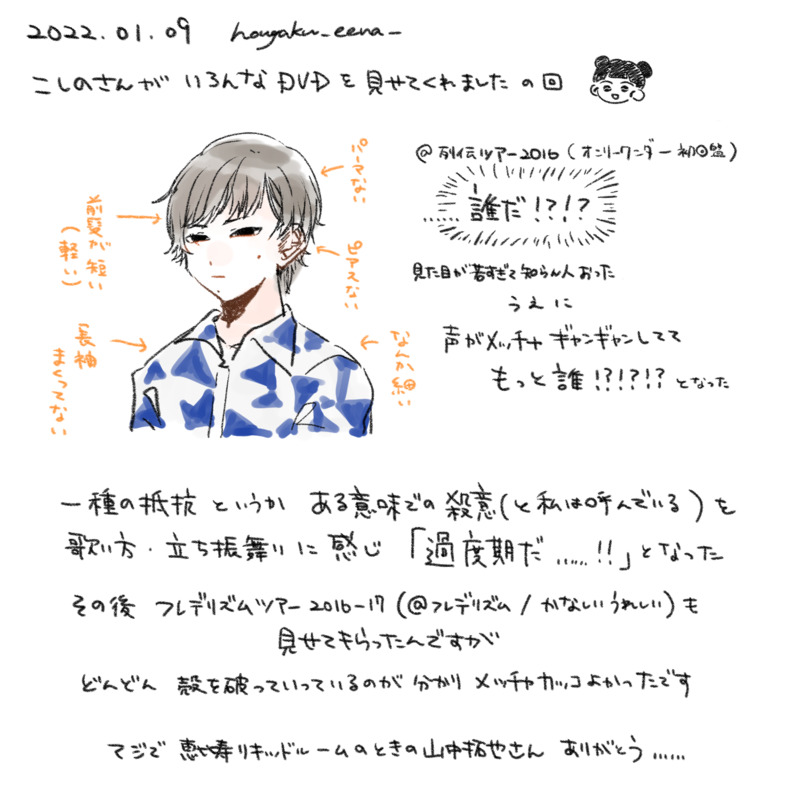 2022.01.09 hougaku_eena_
こしのさんが いろんな DVD を 見せてくれました の回
@ 列伝ツアー 2016 (オンリーワンダー 初回盤)
…… 誰だ!?!?
見た目が若すぎて知らん人おった
うえに
声がメッチャ ギャンギャンしてて
もっと誰!?!?!? となった
パーマない
前髪が短い
(軽い)
ピアスない
長袖
まくってない
なんか細い
一種の抵抗 というか ある意味での 殺意(と私は呼んでいる)を
歌い方・立ち振舞い に 感じ 「過度期だ……!!」となった
その後 フレデリズムツアー 2016-17 (@フレデリズム / かなしいうれしい)も
見せてもらったんですが
どんどん 殻を破っていっているのが 分かり メッチャカッコよかったです
マジで 恵比寿リキッドルームのときの山中拓也さん ありがとう……